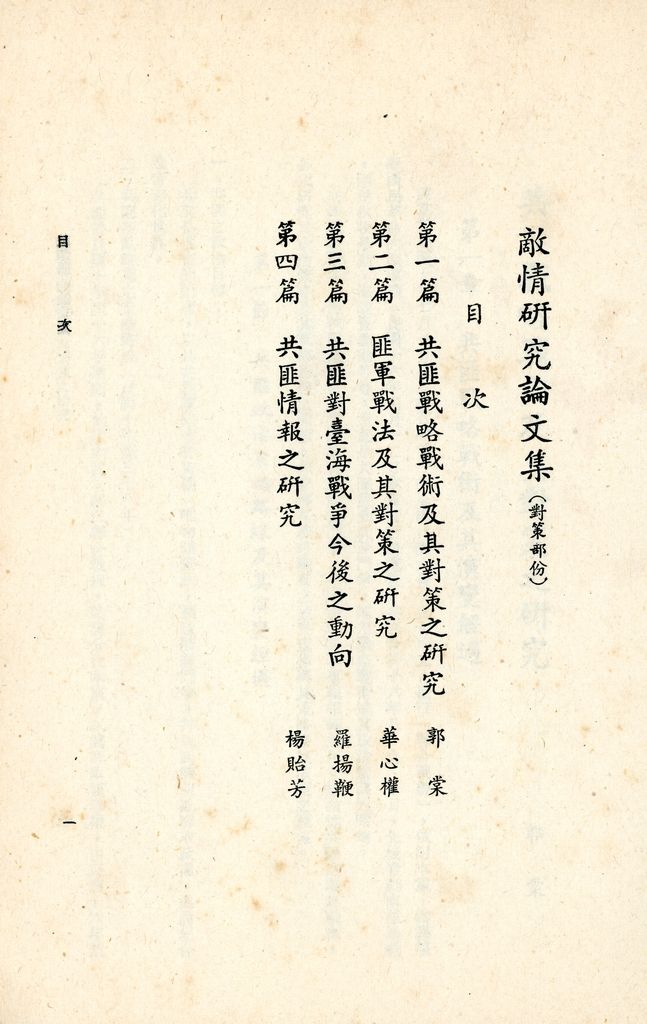 敵情研究論文集(對策部份)
目次
第一篇 共匪戰略戰術及其對策之研究 郭棠
第二篇 匪軍戰法及其對策之研究 華心權
第三篇 共匪對臺海戰爭今後之動向 羅揚鞭
第四篇 共匪情報之研究 楊貽芳
目次 一